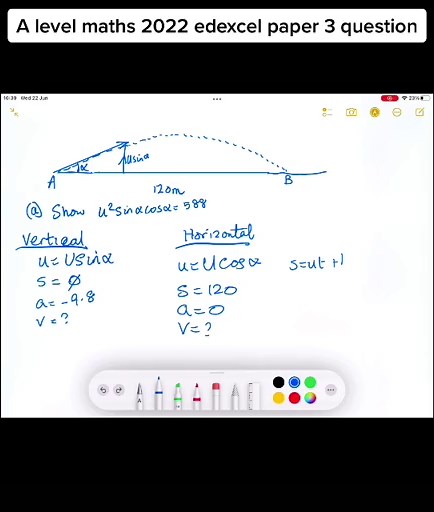 A level maths 2022 edexcel paper 3 question
16:39 Wed 22 Jun
23%
Usinα
α
A
B
120m
(a) Show U²sinαcosα=588
Vertical
u=Usinα
s=0
a=-9.8
v=?
Horizontal
u=Ucosα
s=120
a=0
v=?
s=ut+1